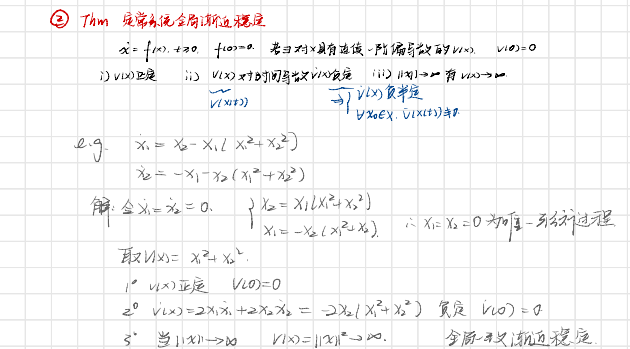 ② Thm 定常系统全局渐近稳定
ẋ = f(x), t≥0. f(0)=0. 若∃对x具有连续一阶偏导数的V(x). V(0)=0
i) V(x)正定 ii) V(x)对时间导数V̇(x)负定 iii) ||x||→∞ 有 V(x)→∞.
V(x(t)) ⇒ { V̇(x)负半定
∀x₀∈X, V̇(x(t))≢0.
e.g. ẋ₁ = x₂ - x₁(x₁²+x₂²)
ẋ₂ = -x₁ - x₂(x₁²+x₂²)
解: 令ẋ₁=ẋ₂=0. { x₂ = x₁(x₁²+x₂²)
x₁ = -x₂(x₁²+x₂²). ∴ x₁=x₂=0 为唯一平衡过程
取V(x) = x₁²+x₂².
1° V(x)正定 V(0)=0
2° V̇(x) = 2x₁ẋ₁+2x₂ẋ₂ = -2x₂(x₁²+x₂²) 负定 V̇(0)=0
3° 当||x||→∞ V(x)=||x||²→∞. 全局一致渐近稳定.